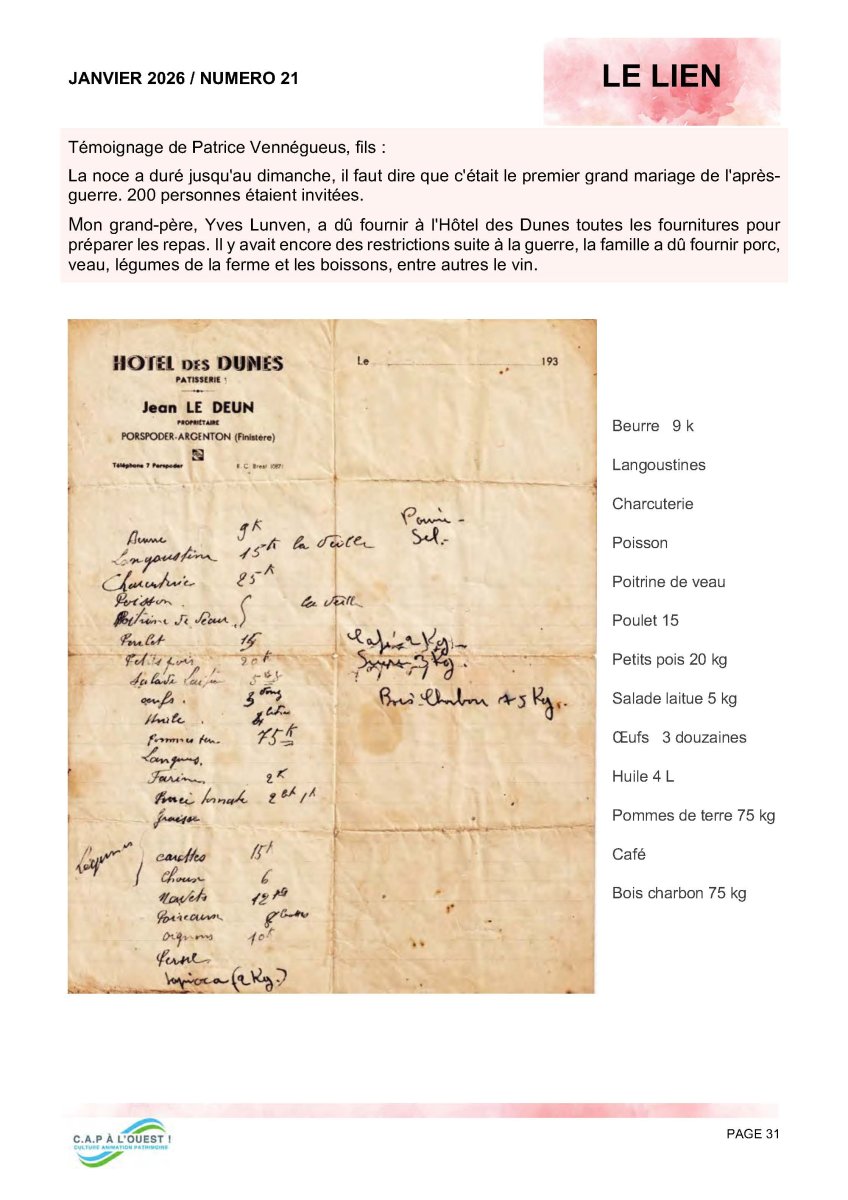 JANVIER 2026 / NUMERO 21
LE LIEN
Témoignage de Patrice Vennégueus, fils :
La noce a duré jusqu'au dimanche, il faut dire que c'était le premier grand mariage de l'après-
guerre. 200 personnes étaient invitées.
Mon grand-père, Yves Lunven, a dû fournir à l'Hôtel des Dunes toutes les fournitures pour
préparer les repas. Il y avait encore des restrictions suite à la guerre, la famille a dû fournir porc,
veau, légumes de la ferme et les boissons, entre autres le vin.
HOTEL DES DUNES
PATISSERIE
Jean LE DEUN
PROPRIÉTAIRE
PORSPODER-ARGENTON (Finistère)
Téléphone 7 Porspoder
R. C. Brest
Le 193
9K
Langoustine 15K la veille
Charcuterie 25K
Poisson
Poitrine de veau la veille
Poulet 15
Petits pois 20K
Salade
oeufs. 3
Huile. 4
75K
Farine 2K
tomate
Légumes
carottes 15K
Choux 6
Navets 12 Kg
Poireaux 8
oignons 10K
tapioca (2 Kg.)
Sel.
2 Kg.
3 Kg.
Bois Charbon 75 Kg.
Beurre 9 k
Langoustines
Charcuterie
Poisson
Poitrine de veau
Poulet 15
Petits pois 20 kg
Salade laitue 5 kg
Œufs 3 douzaines
Huile 4 L
Pommes de terre 75 kg
Café
Bois charbon 75 kg
C.A.P À L'OUEST !
CULTURE ANIMATION PATRIMOINE
PAGE 31